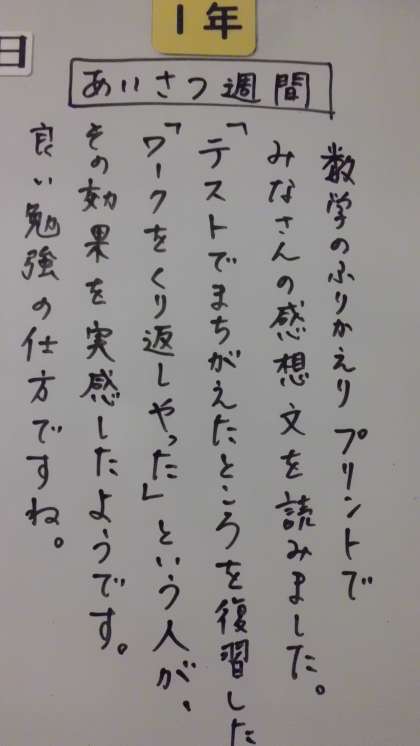 1年
日
あいさつ週間
数学のふりかえりプリントで
みなさんの感想文を読みました。
「テストでまちがえたところを復習した
「ワークをくり返しやった」という人が、
その効果を実感したようです。
良い勉強の仕方ですね。